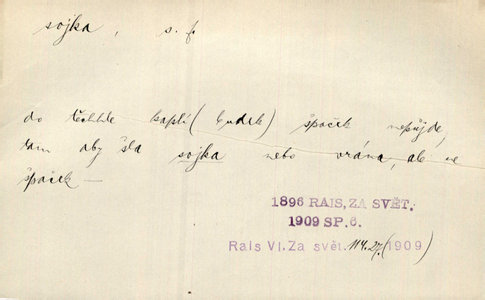 sojka, s. f.
do těchhle kaplí (budek) špaček nepůjde,
tam aby šla sojka nebo vrána, ale ne
špaček —
1896 RAIS, ZA SVĚT.
1909 SP. 6.
Rais VI. Za svět. 114.27. (1909)